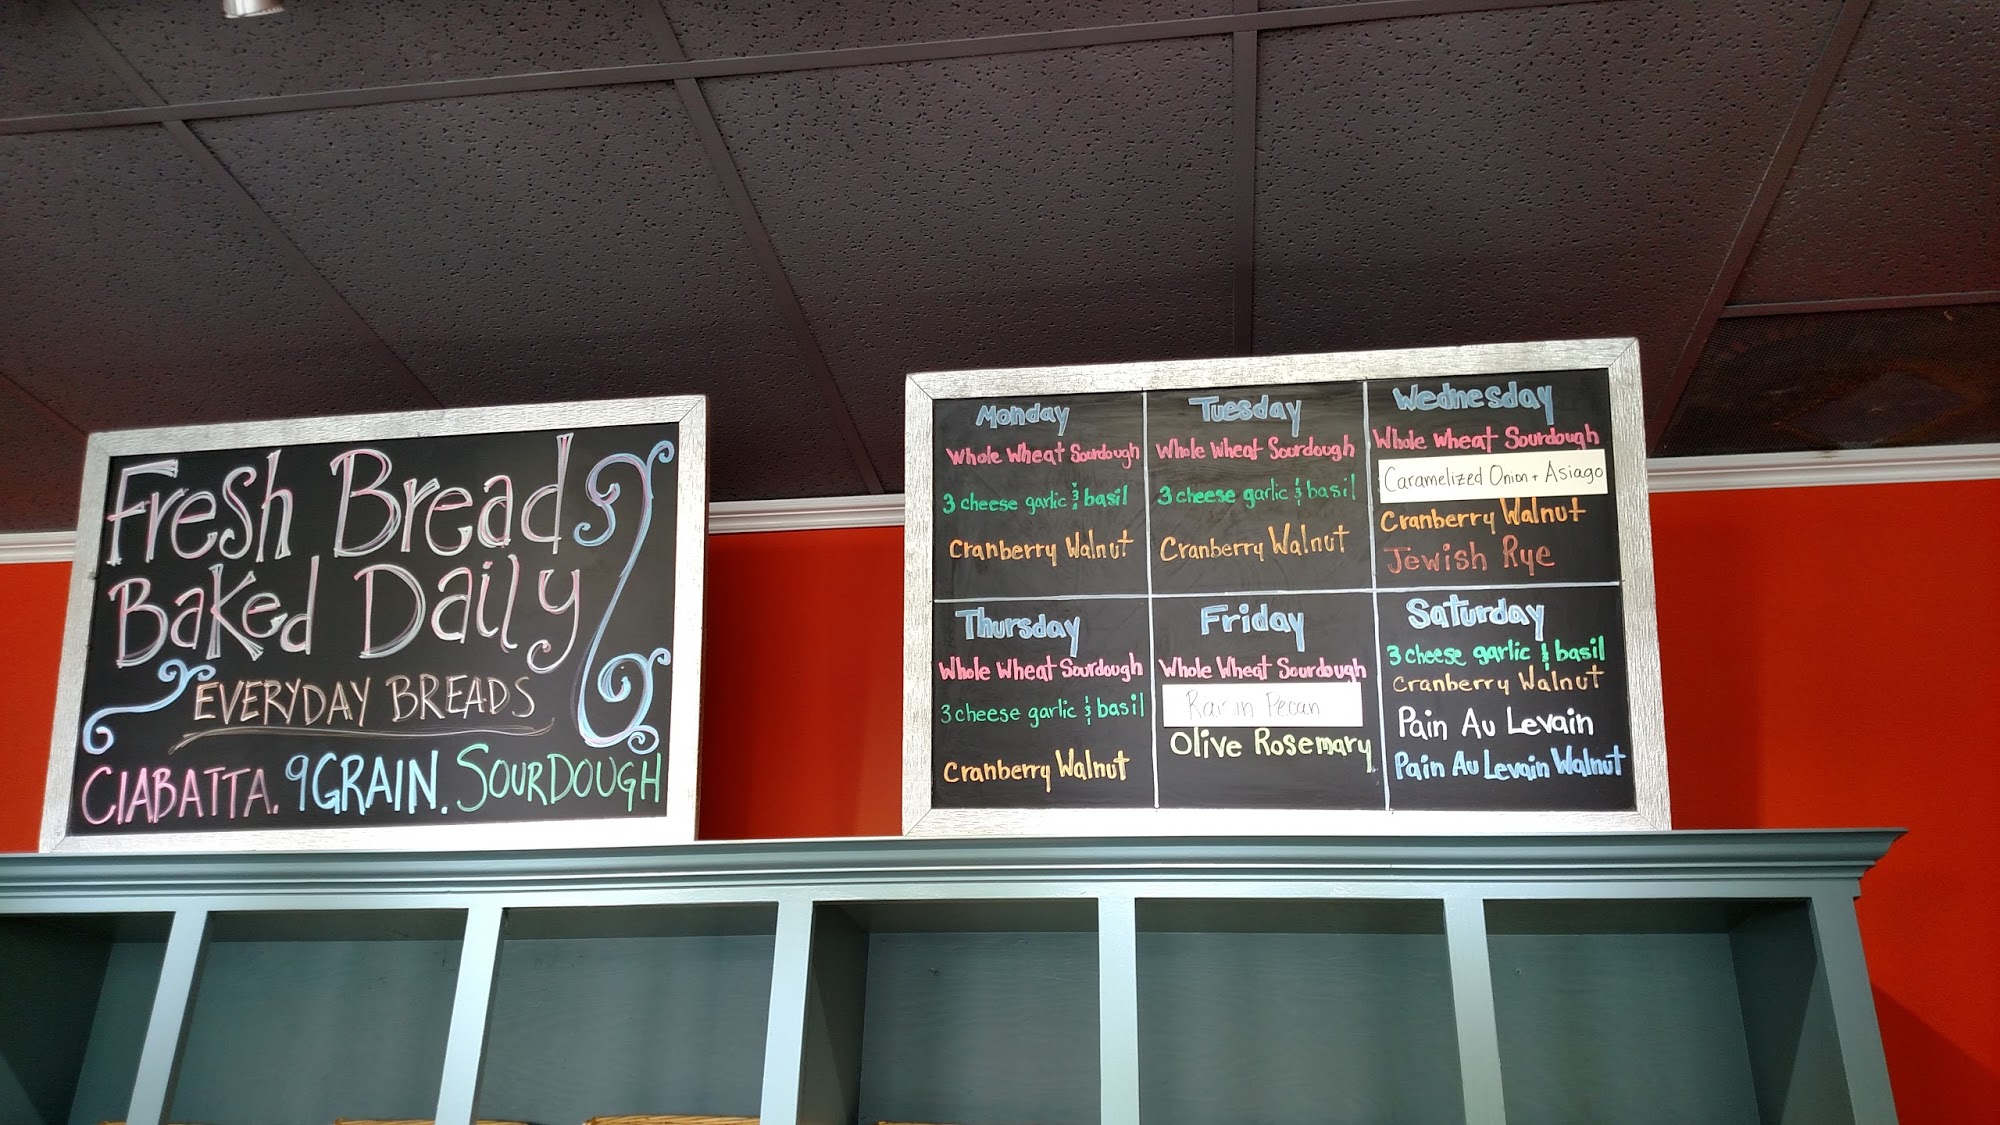 Fresh Breads
Baked Daily
EVERYDAY BREADS
CIABATTA. 9GRAIN. SOURDOUGH
Monday
Whole Wheat Sourdough
3 cheese garlic & basil
Cranberry Walnut
Tuesday
Whole Wheat Sourdough
3 cheese garlic & basil
Cranberry Walnut
Wednesday
Whole Wheat Sourdough
Caramelized Onion + Asiago
Cranberry Walnut
Jewish Rye
Thursday
Whole Wheat Sourdough
3 cheese garlic & basil
Cranberry Walnut
Friday
Whole Wheat Sourdough
Raisin Pecan
Olive Rosemary
Saturday
3 cheese garlic & basil
Cranberry Walnut
Pain Au Levain
Pain Au Levain Walnut